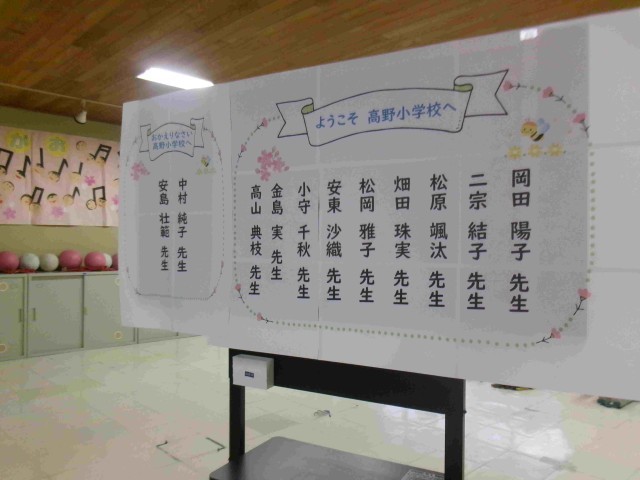 ようこそ 高野小学校へ
岡田 陽子 先生
二宗 結子 先生
松原 颯汰 先生
畑田 珠実 先生
松岡 雅子 先生
安東 沙織 先生
小守 千秋 先生
金島 実 先生
高山 典枝 先生
おかえりなさい
高野小学校へ
中村 純子 先生
安島 壮範 先生